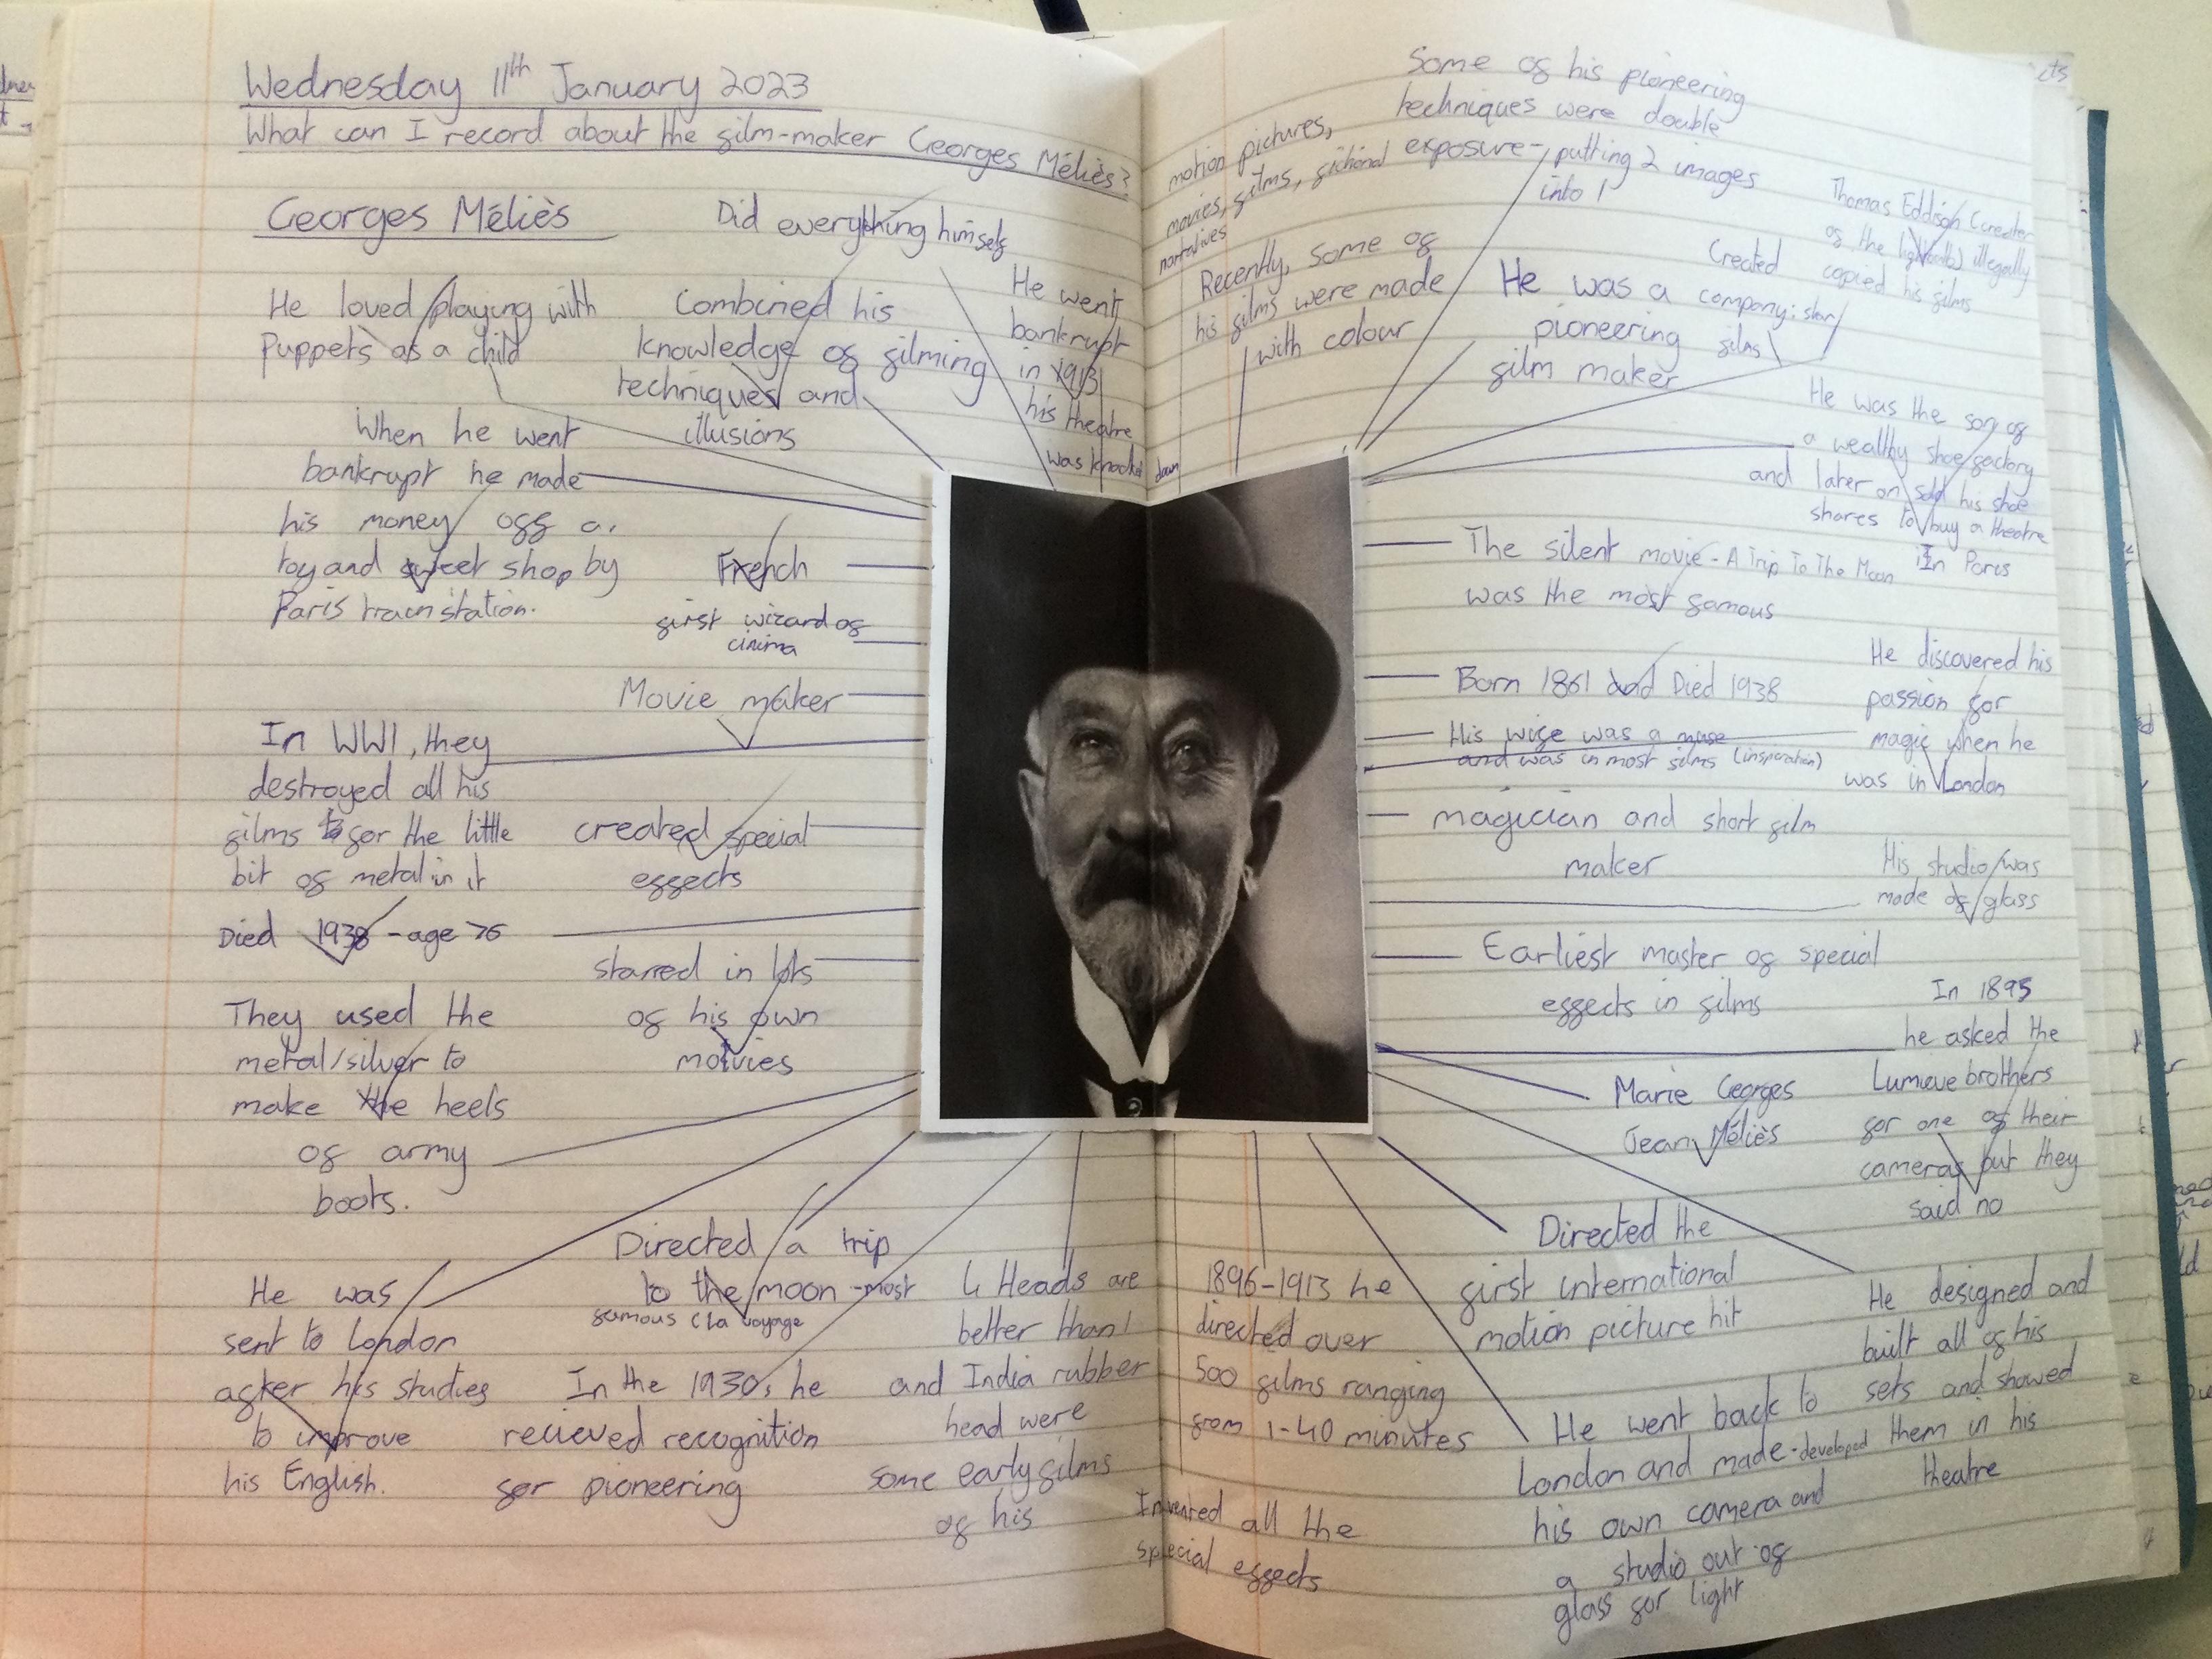 Wednesday 11th January 2023
What can I record about the film-maker Georges Méliès?
Georges Méliès
Did everything himself
He loved playing with
Puppets as a child
Combined his
knowledge of filming
techniques and
illusions
He went
bankrupt
in 1913
his theatre
was knocked down
When he went
bankrupt he made
his money off a
toy and sweet shop by
Paris train station.
French
first wizard of
cinima
Movie maker
In WW1, they
destroyed all his
films for the little
bit of metal in it
created special
effects
Died 1938 - age 76
starred in lots
of his own
movies
They used the
metal/silver to
make the heels
of army
boots.
He was
sent to London
after his studies
to improve
his English.
Directed a trip
to the moon - most
famous (la voyage
In the 1930s he
recieved recognition
for pioneering
4 Heads are
better than 1
and India rubber
head were
some early films
of his
motion pictures,
movies, films, fictional
narratives
Some of his pioneering
techniques were double
exposure - putting 2 images
into 1
Recently, some of
his films were made
with colour
He was a
pioneering
film maker
Created
company: star
films
Thomas Eddison (creater
of the lightbulb) illegally
copied his films
He was the son of
a wealthy shoe factory
and later on sold his shoe
shares to buy a theatre
in Paris
The silent movie - A Trip To The Moon
was the most famous
Born 1861 and Died 1938
His wife was a muse
and was in most films (inspiration)
He discovered his
passion for
magic when he
was in London
magician and short film
maker
His studio was
made of glass
Earliest master of special
effects in films
In 1895
he asked the
Lumieve brothers
for one of their
cameras but they
said no
Marie Georges
Jean Méliès
Directed the
first international
motion picture hit
1896-1913 he
directed over
500 films ranging
from 1-40 minutes
Invented all the
special effects
He went back to
London and made - developed
his own camera and
a studio out of
glass for light
He designed and
built all of his
sets and showed
them in his
theatre